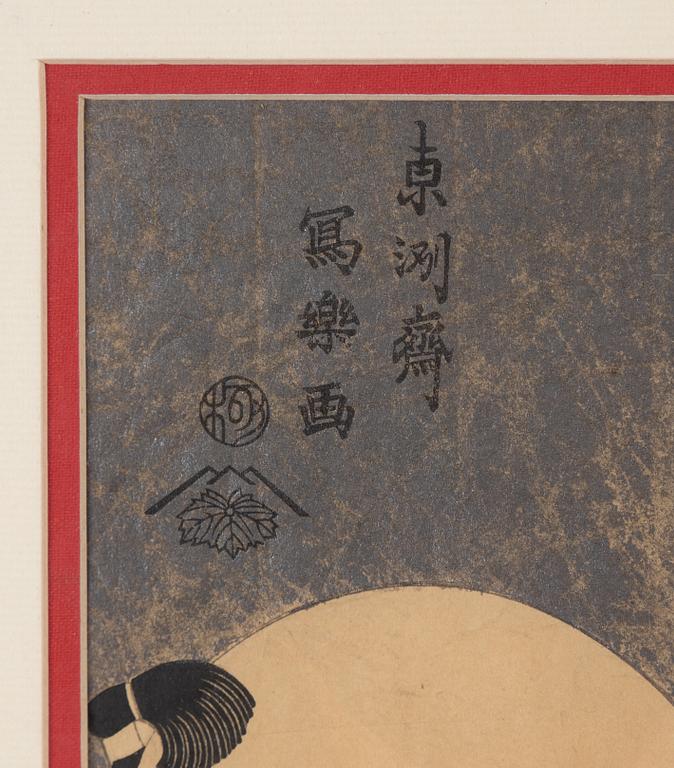 東洲齋
冩樂画
極